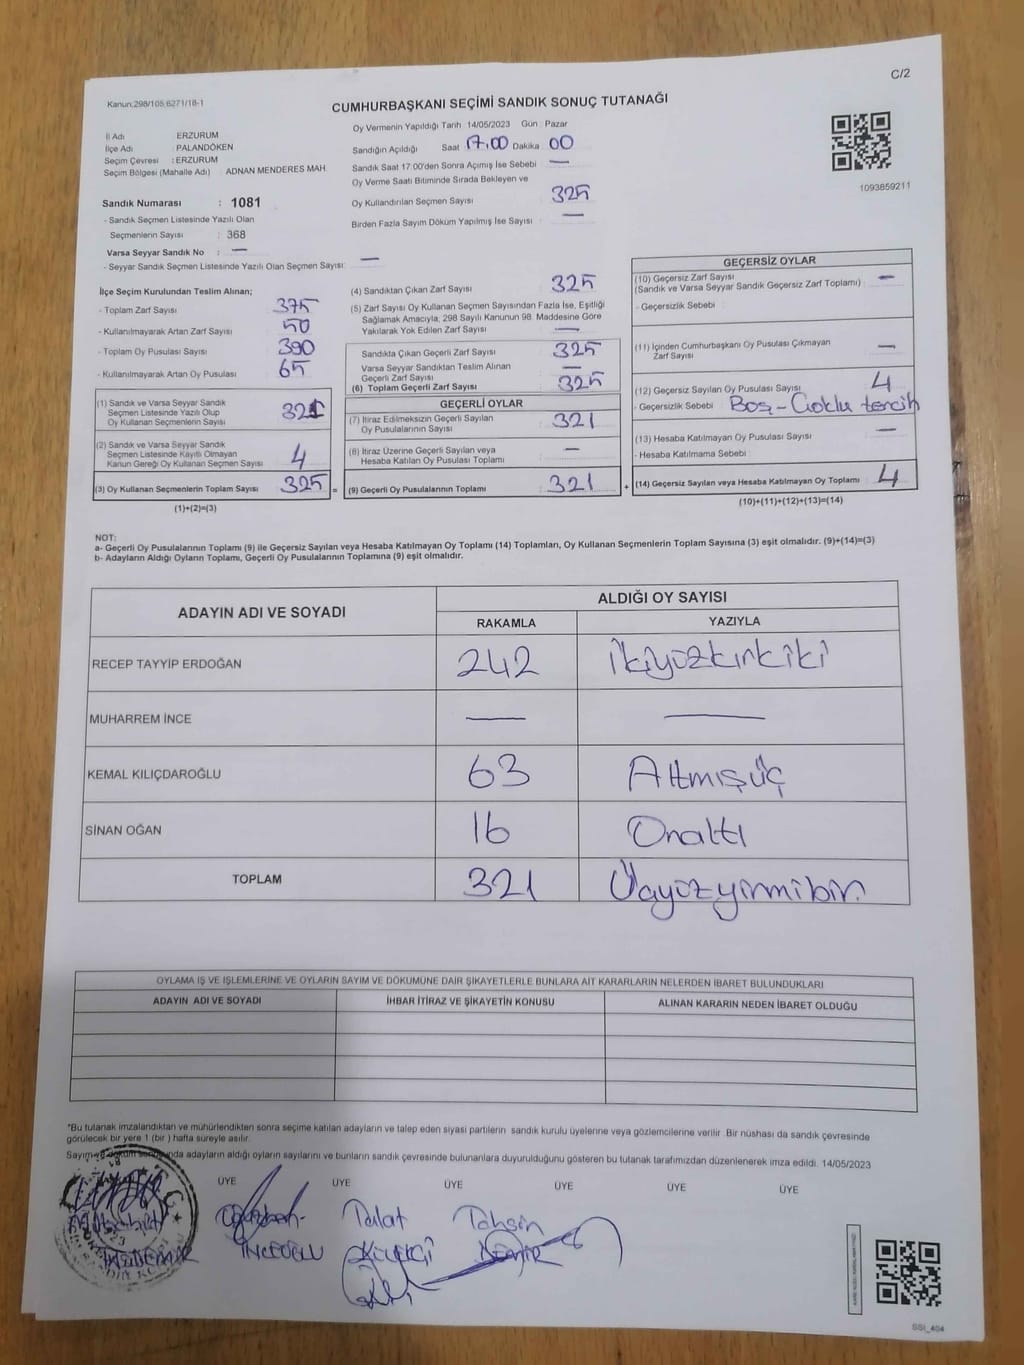 C/2
Kanun:298/105;6271/18-1
CUMHURBAŞKANI SEÇİMİ SANDIK SONUÇ TUTANAĞI
İl Adı ERZURUM
İlçe Adı : PALANDÖKEN
Seçim Çevresi : ERZURUM
Seçim Bölgesi (Mahalle Adı) ADNAN MENDERES MAH
Sandık Numarası : 1081
- Sandık Seçmen Listesinde Yazılı Olan
Seçmenlerin Sayısı : 368
Varsa Seyyar Sandık No : —
- Seyyar Sandık Seçmen Listesinde Yazılı Olan Seçmen Sayısı: —
Oy Vermenin Yapıldığı Tarih 14/05/2023 Gün Pazar
Sandığın Açıldığı Saat 17:00 Dakika 00
Sandık Saat 17:00'den Sonra Açımış İse Sebebi —
Oy Verme Saati Bitiminde Sırada Bekleyen ve
Oy Kullandırılan Seçmen Sayısı 325
Birden Fazla Sayım Döküm Yapılmış İse Sayısı —
1093859211
İlçe Seçim Kurulundan Teslim Alınan;
- Toplam Zarf Sayısı 375
- Kullanılmayarak Artan Zarf Sayısı 50
- Toplam Oy Pusulası Sayısı 390
- Kullanılmayarak Artan Oy Pusulası 65
(1) Sandık ve Varsa Seyyar Sandık
Seçmen Listesinde Yazılı Olup
Oy Kullanan Seçmenlerin Sayısı 321
(2) Sandık ve Varsa Seyyar Sandık
Seçmen Listesinde Kayıtlı Olmayan
Kanun Gereği Oy Kullanan Seçmen Sayısı 4
(3) Oy Kullanan Seçmenlerin Toplam Sayısı 325 =
(1)+(2)=(3)
(4) Sandıktan Çıkan Zarf Sayısı 325
(5) Zarf Sayısı Oy Kullanan Seçmen Sayısından Fazla İse, Eşitliği
Sağlamak Amacıyla, 298 Sayılı Kanunun 98. Maddesine Göre
Yakılarak Yok Edilen Zarf Sayısı —
Sandıkta Çıkan Geçerli Zarf Sayısı 325
Varsa Seyyar Sandıktan Teslim Alınan
Geçerli Zarf Sayısı —
(6) Toplam Geçerli Zarf Sayısı 325
GEÇERLİ OYLAR
(7) İtiraz Edilmeksizin Geçerli Sayılan
Oy Pusulalarının Sayısı 321
(8) İtiraz Üzerine Geçerli Sayılan veya
Hesaba Katılan Oy Pusulası Toplamı —
(9) Geçerli Oy Pusulalarının Toplamı 321 +
GEÇERSİZ OYLAR
(10) Geçersiz Zarf Sayısı
(Sandık ve Varsa Seyyar Sandık Geçersiz Zarf Toplamı) : —
- Geçersizlik Sebebi :
(11) İçinden Cumhurbaşkanı Oy Pusulası Çıkmayan
Zarf Sayısı —
(12) Geçersiz Sayılan Oy Pusulası Sayısı 4
- Geçersizlik Sebebi Boş - Çoklu tercih
(13) Hesaba Katılmayan Oy Pusulası Sayısı —
- Hesaba Katılmama Sebebi :
(14) Geçersiz Sayılan veya Hesaba Katılmayan Oy Toplamı : 4
(10)+(11)+(12)+(13)=(14)
NOT:
a- Geçerli Oy Pusulalarının Toplamı (9) ile Geçersiz Sayılan veya Hesaba Katılmayan Oy Toplamı (14) Toplamları, Oy Kullanan Seçmenlerin Toplam Sayısına (3) eşit olmalıdır. (9)+(14)=(3)
b- Adayların Aldığı Oyların Toplamı, Geçerli Oy Pusulalarının Toplamına (9) eşit olmalıdır.
ADAYIN ADI VE SOYADI ALDIĞI OY SAYISI
RAKAMLA YAZIYLA
RECEP TAYYİP ERDOĞAN 242 İkiyüzkırkiki
MUHARREM İNCE — —
KEMAL KILIÇDAROĞLU 63 Altmışüç
SİNAN OĞAN 16 Onaltı
TOPLAM 321 Üçyüzyirmibir
OYLAMA İŞ VE İŞLEMLERİNE VE OYLARIN SAYIM VE DÖKÜMÜNE DAİR ŞİKAYETLERLE BUNLARA AİT KARARLARIN NELERDEN İBARET BULUNDUKLARI
ADAYIN ADI VE SOYADI İHBAR İTİRAZ VE ŞİKAYETİN KONUSU ALINAN KARARIN NEDEN İBARET OLDUĞU
"Bu tutanak imzalandıktan ve mühürlendikten sonra seçime katılan adayların ve talep eden siyasi partilerin sandık kurulu üyelerine veya gözlemcilerine verilir. Bir nüshası da sandık çevresinde
görülecek bir yere 1 (bir ) hafta süreyle asılır.
Sayım ve döküm sonunda adayların aldığı oyların sayılarını ve bunların sandık çevresinde bulunanlara duyurulduğunu gösteren bu tutanak tarafımızdan düzenlenerek imza edildi. 14/05/2023
ÜYE ÜYE ÜYE ÜYE ÜYE ÜYE
Talat Tahsin
İNCEOĞLU DEMİR
SSI_404